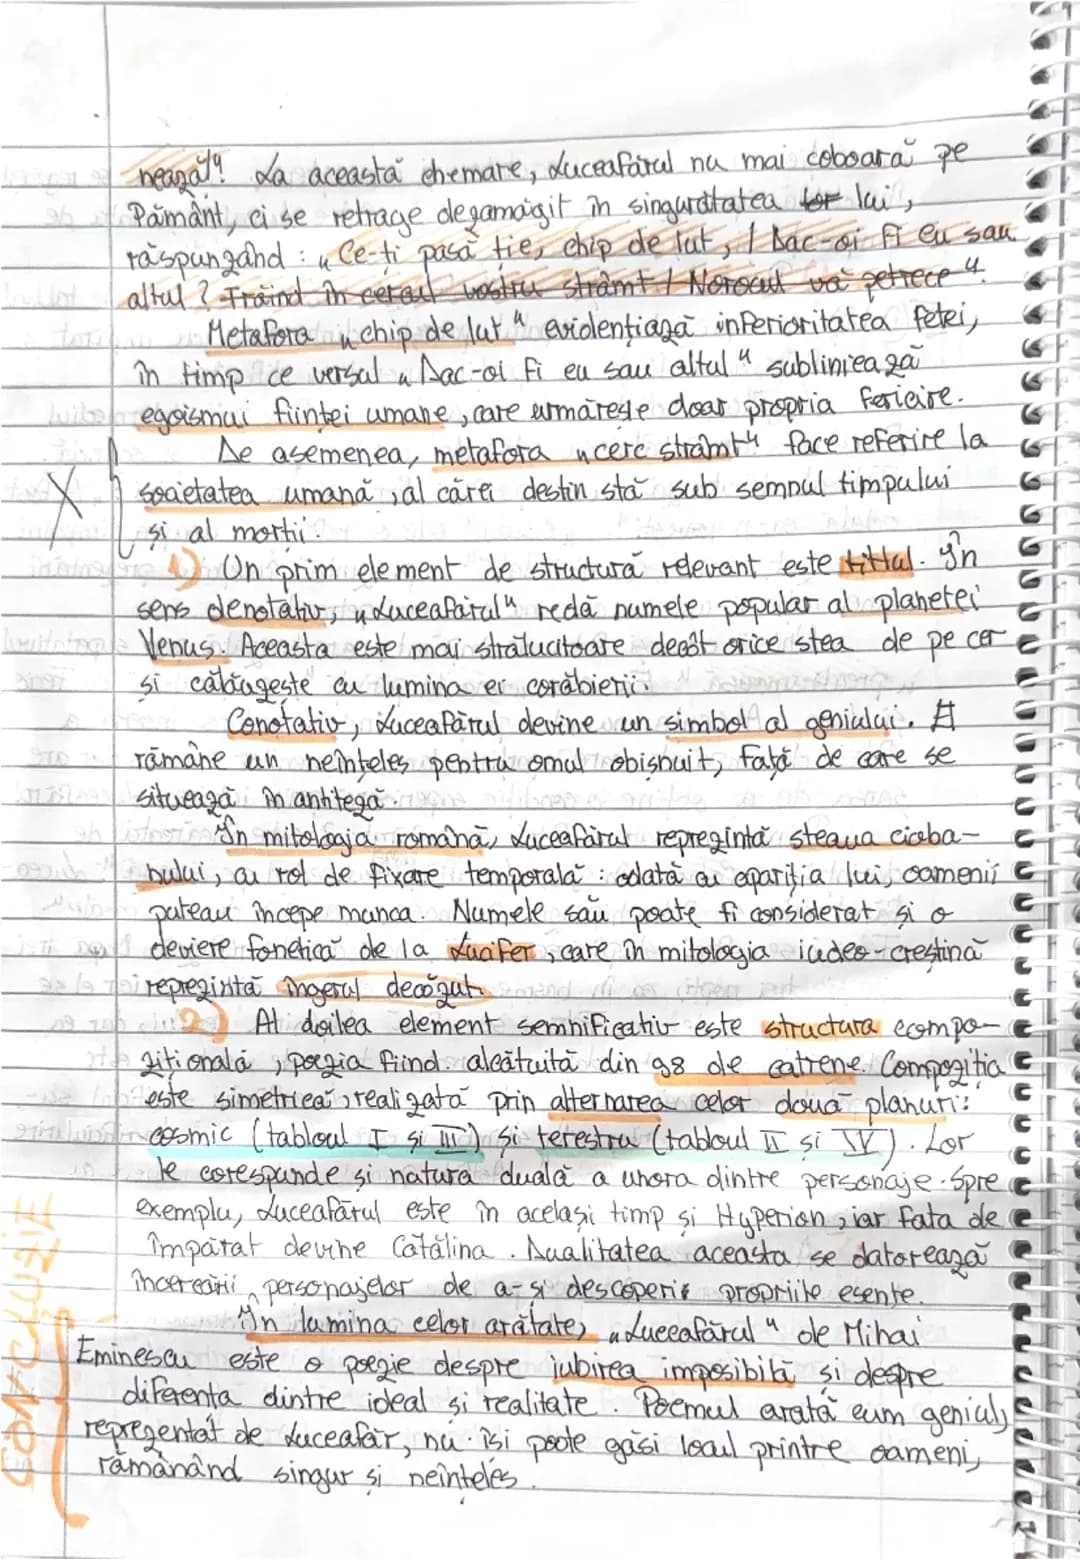 nează!" La această chemare, Luceafărul nu mai coboară pe
Pământ, ci se retrage dezamăgit în singurătatea lor lui,
răspunzând: „Ce-ți pasă ție, chip de lut, / Dac-oi fi eu sau
altul? Trăind în cercul vostru strâmt / Norocul vă petrece".
Metafora „chip de lut" evidențiază inferioritatea fetei,
în timp ce versul „Dac-oi fi eu sau altul" subliniează
egoismul ființei umane, care urmărește doar propria fericire.
De asemenea, metafora „cerc strâmt" face referire la
X societatea umană, al cărei destin stă sub semnul timpului
și al morții.
1) Un prim element de structură relevant este titlul. În
sens denotativ, „Luceafărul" redă numele popular al planetei
Venus. Aceasta este mai strălucitoare decât orice stea de pe cer
și călăuzește cu lumina ei corăbierii.
Conotativ, Luceafărul devine un simbol al geniului. El
rămâne un neînțeles pentru omul obișnuit, față de care se
situează în antiteză.
În mitologia română, Luceafărul reprezintă steaua cioba-
nului, cu rol de fixare temporală: odată cu apariția lui, oamenii
puteau începe munca. Numele său poate fi considerat și o
deviere fonetică de la Lucifer, care în mitologia iudeo-creștină
reprezintă îngerul decăzut.
2) Al doilea element semnificativ este structura compo-
zițională, poezia fiind alcătuită din 98 de catrene. Compoziția
este simetrică, realizată prin alternarea celor două planuri:
cosmic (tabloul I și III) și terestru (tabloul II și IV). Lor
le corespunde și natura duală a unora dintre personaje. Spre
exemplu, Luceafărul este în același timp și Hyperion, iar fata de
împărat devine Cătălina. Dualitatea aceasta se datorează
încercării personajelor de a-și descoperi propriile esențe.
În lumina celor arătate, „Luceafărul" de Mihai
Eminescu este o poezie despre iubirea imposibilă și despre
diferența dintre ideal și realitate. Poemul arată cum geniul,
reprezentat de Luceafăr, nu își poate găsi locul printre oameni,
rămânând singur și neînțeles.
CONCLUZIE